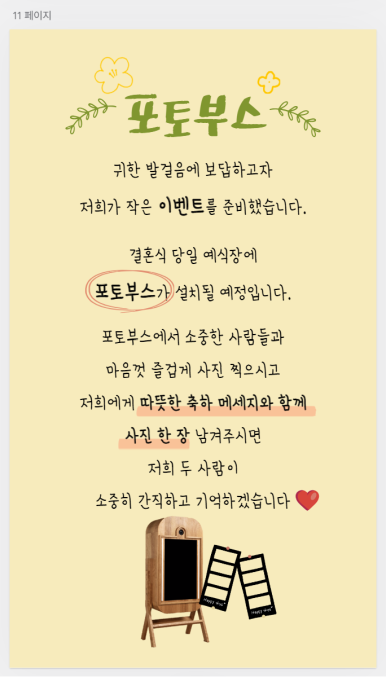 11 페이지
포토부스
귀한 발걸음에 보답하고자
저희가 작은 이벤트를 준비했습니다.
결혼식 당일 예식장에
포토부스가 설치될 예정입니다.
포토부스에서 소중한 사람들과
마음껏 즐겁게 사진 찍으시고
저희에게 따뜻한 축하 메세지와 함께
사진 한 장 남겨주시면
저희 두 사람이
소중히 간직하고 기억하겠습니다